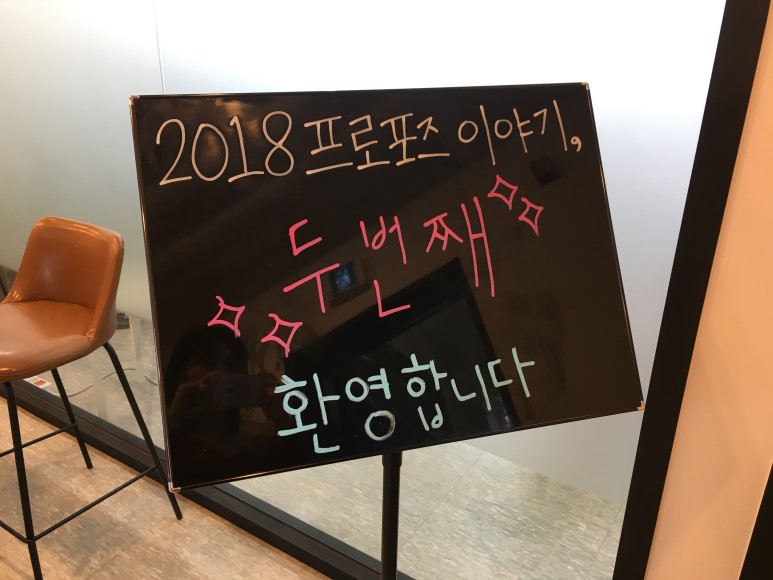 2018 프로포즈 이야기,
두번째
환영합니다